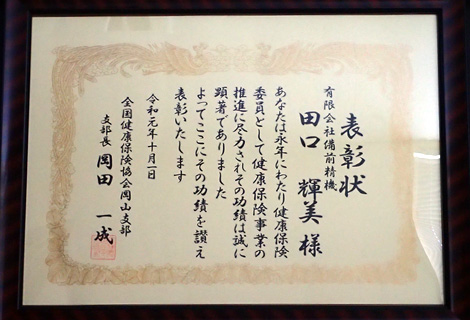 表彰状
有限会社備前精機
田口 輝美 様
あなたは永年にわたり健康保険
委員として健康保険事業の
推進に尽力されその功績は誠に
顕著でありました
よってここにその功績を讃え
表彰いたします
令和元年十月二日
全国健康保険協会岡山支部
支部長 岡田 一成